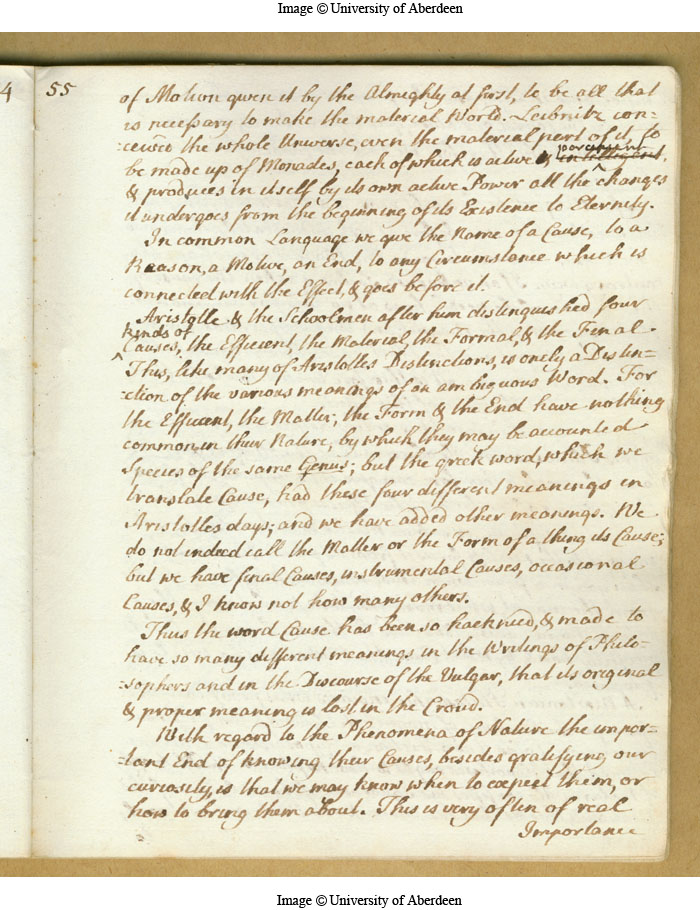 Image © University of Aberdeen
4
55
of Motion given it by the Almighty at first, to be all that
is necessary to make the material World. Leibnitz con=
:ceived the whole Universe, even the material part of it, to
be made up of Monades, each of which is active & percipient intelligent,
& produces in itself by its own active Power all the changes
it undergoes from the beginning of its Existence to Eternity.
In common Language we give the Name of a Cause, to a
Reason, a Motive, an End, to any Circumstance which is
connected with the Effect, & goes before it.
Aristotle & the Schoolmen after him distinguished four
kinds of
Causes, the Efficient, the Material, the Formal, & the Final.
This, like many of Aristotles Distinctions, is onely a Distin=
:ction of the various meanings of an ambiguous Word. For
the Efficient, the Matter, the Form & the End have nothing
common in their Nature, by which they may be accounted
Species of the same Genus; but the greek word, which we
translate Cause, had these four different meanings in
Aristotles days; and we have added other meanings. We
do not indeed call the Matter or the Form of a thing its Cause;
but we have final Causes, instrumental Causes, occasional
Causes, & I know not how many others.
Thus the word Cause has been so hackneid, & made to
have so many different meanings in the Writings of Philo=
:sophers and in the Discourse of the Vulgar, that its original
& proper meaning is lost in the Croud.
With regard to the Phenomena of Nature the impor=
:tant End of knowing their Causes, besides gratifying our
curiosity, is that we may know when to expect them, or
how to bring them about. This is very often of real
Importance
Image © University of Aberdeen